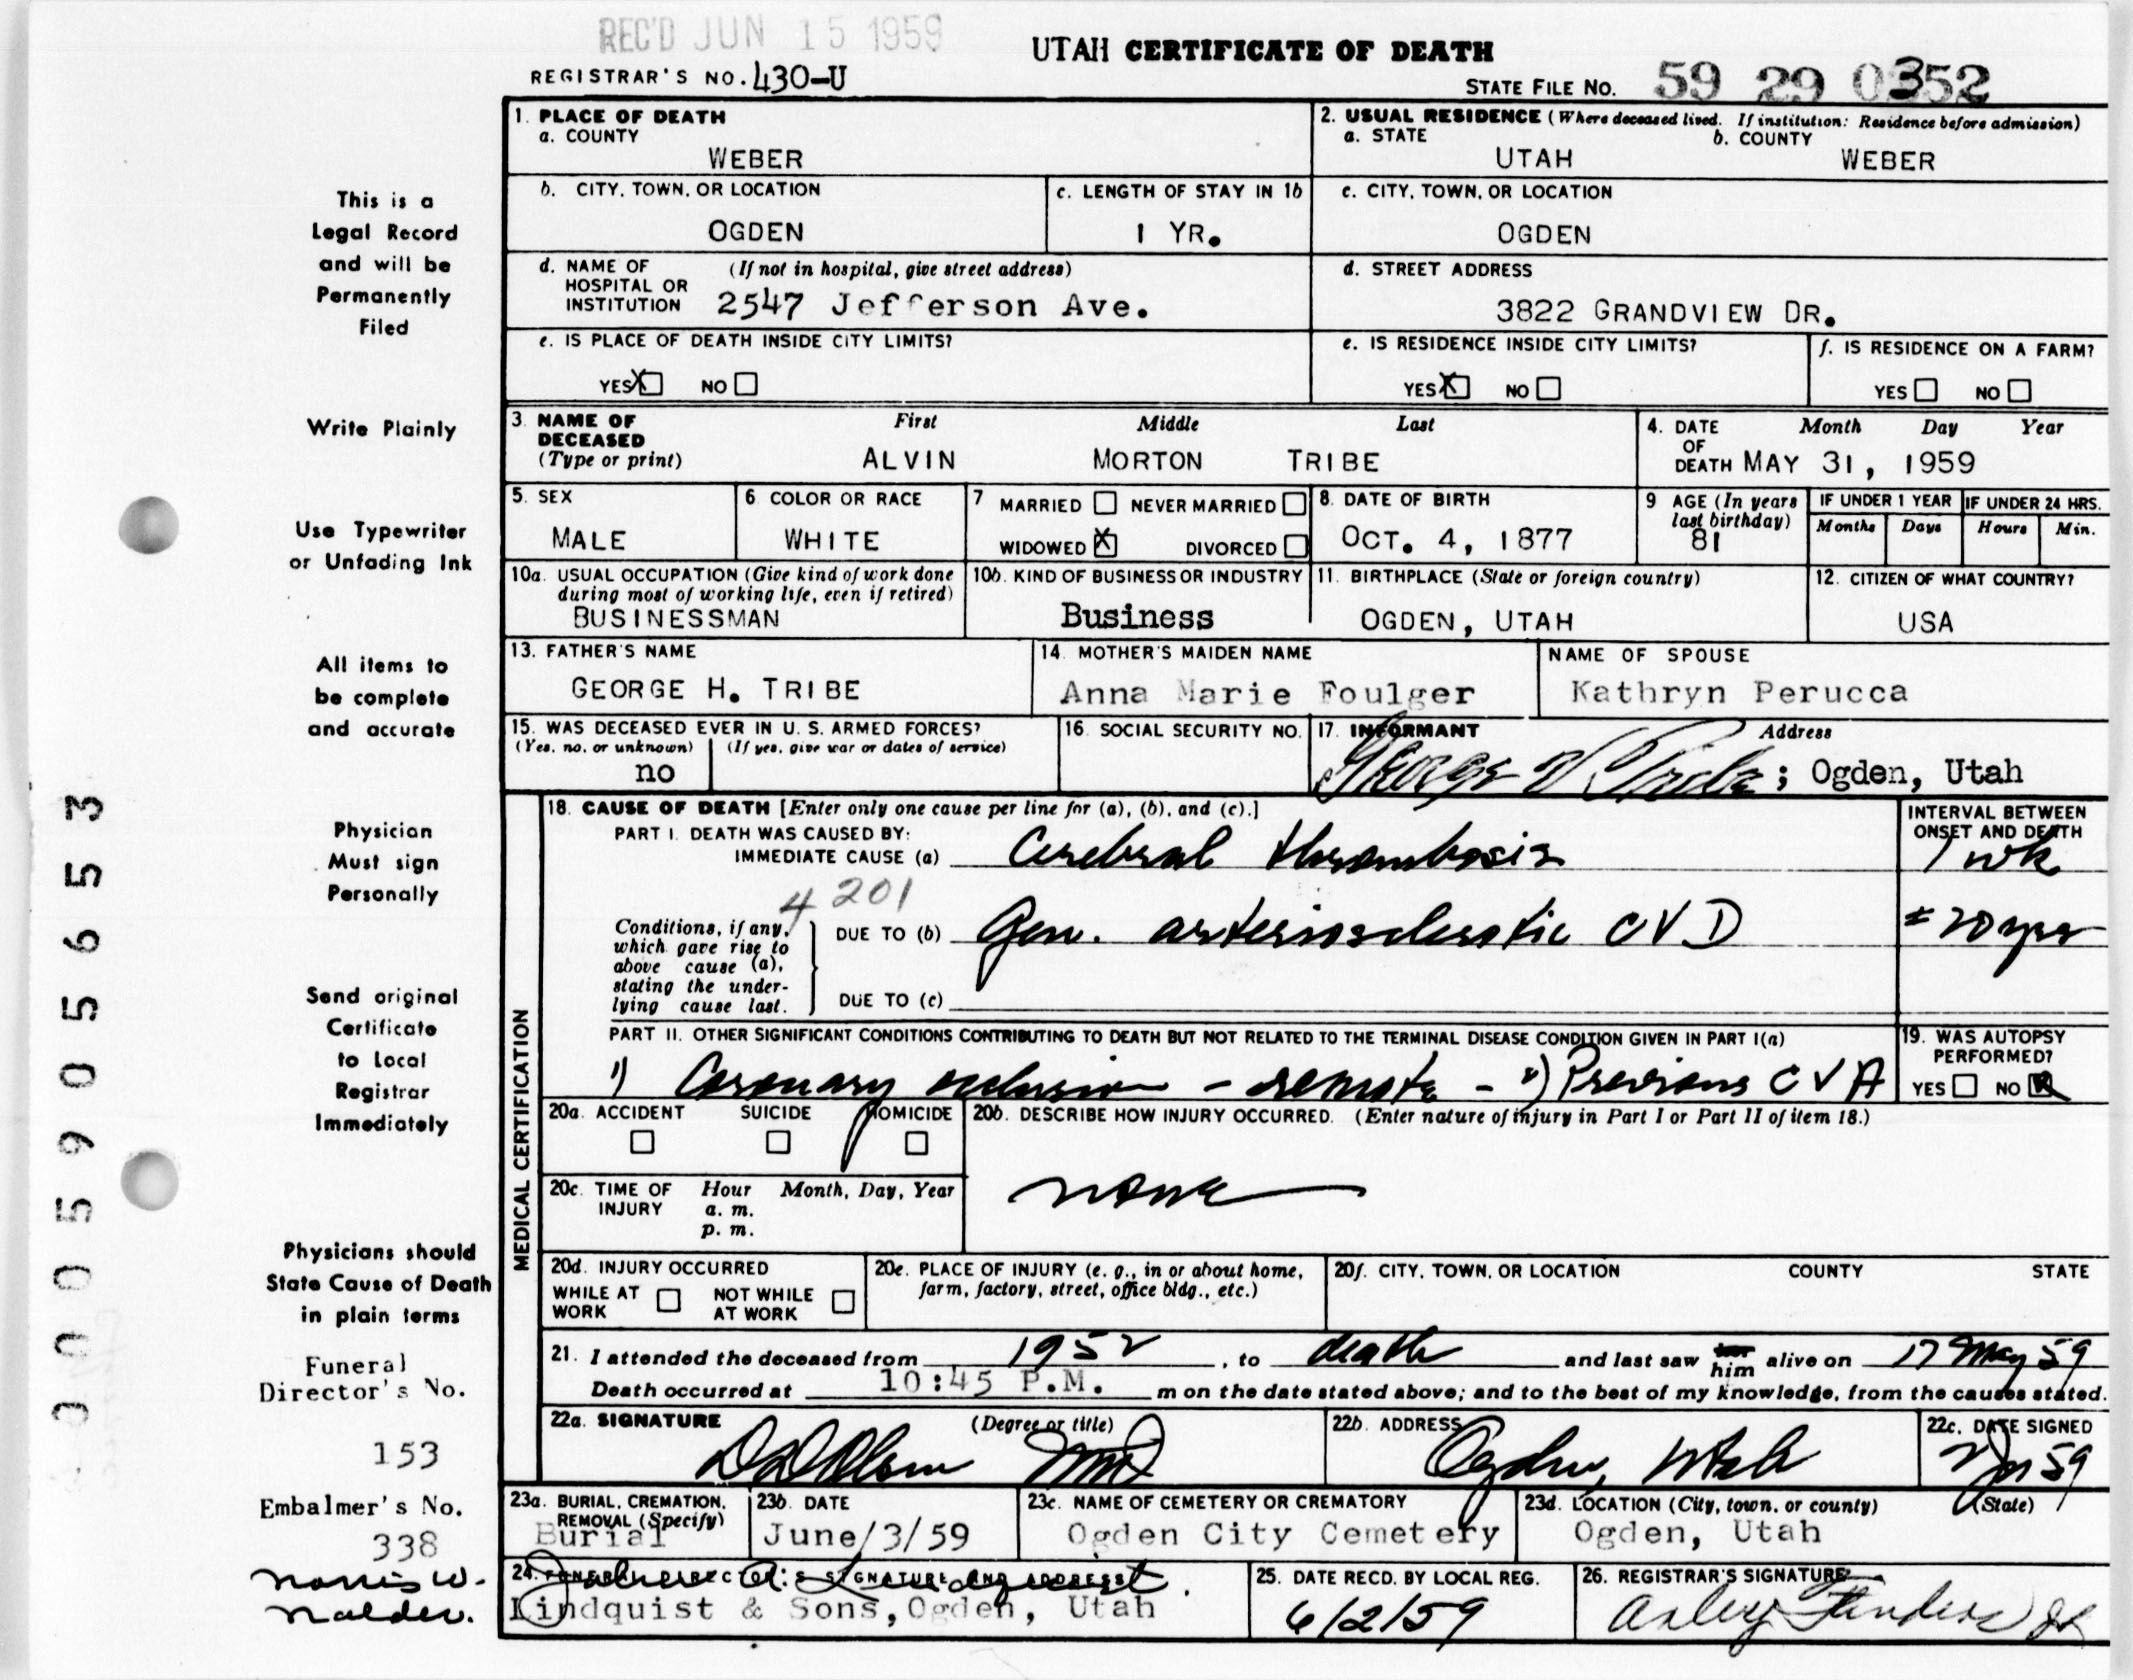 REC'D JUN 15 1959
UTAH CERTIFICATE OF DEATH
REGISTRAR'S NO. 430-U
STATE FILE NO. 59 29 0352
1. PLACE OF DEATH
a. COUNTY
WEBER
2. USUAL RESIDENCE (Where deceased lived. If institution: Residence before admission)
a. STATE b. COUNTY
UTAH WEBER
b. CITY, TOWN, OR LOCATION
OGDEN
c. LENGTH OF STAY IN 1b
1 YR.
c. CITY, TOWN, OR LOCATION
OGDEN
d. NAME OF HOSPITAL OR INSTITUTION (If not in hospital, give street address)
2547 Jefferson Ave.
d. STREET ADDRESS
3822 GRANDVIEW DR.
e. IS PLACE OF DEATH INSIDE CITY LIMITS?
YES X NO
e. IS RESIDENCE INSIDE CITY LIMITS?
YES X NO
f. IS RESIDENCE ON A FARM?
YES NO
3. NAME OF DECEASED (Type or print)
First Middle Last
ALVIN MORTON TRIBE
4. DATE OF DEATH
Month Day Year
MAY 31, 1959
5. SEX
MALE
6 COLOR OR RACE
WHITE
7 MARRIED NEVER MARRIED
WIDOWED X DIVORCED
8. DATE OF BIRTH
OCT. 4, 1877
9 AGE (In years last birthday)
81
IF UNDER 1 YEAR
Months Days
IF UNDER 24 HRS.
Hours Min.
10a. USUAL OCCUPATION (Give kind of work done during most of working life, even if retired)
BUSINESSMAN
10b. KIND OF BUSINESS OR INDUSTRY
Business
11. BIRTHPLACE (State or foreign country)
OGDEN, UTAH
12. CITIZEN OF WHAT COUNTRY?
USA
13. FATHER'S NAME
GEORGE H. TRIBE
14. MOTHER'S MAIDEN NAME
Anna Marie Foulger
NAME OF SPOUSE
Kathryn Perucca
15. WAS DECEASED EVER IN U. S. ARMED FORCES?
(Yes, no, or unknown) (If yes, give war or dates of service)
no
16. SOCIAL SECURITY NO.
17. INFORMANT Address
George Tribe; Ogden, Utah
MEDICAL CERTIFICATION
18. CAUSE OF DEATH [Enter only one cause per line for (a), (b), and (c).]
INTERVAL BETWEEN ONSET AND DEATH
PART I. DEATH WAS CAUSED BY:
IMMEDIATE CAUSE (a) Cerebral thrombosis 1 wk
4201
Conditions, if any, which gave rise to above cause (a), stating the underlying cause last.
DUE TO (b) Gen. arteriosclerotic CVD ± 20 yrs
DUE TO (c)
PART II. OTHER SIGNIFICANT CONDITIONS CONTRIBUTING TO DEATH BUT NOT RELATED TO THE TERMINAL DISEASE CONDITION GIVEN IN PART I(a)
1) Coronary occlusion - remote - 2) Previous CVA
19. WAS AUTOPSY PERFORMED?
YES NO X
20a. ACCIDENT SUICIDE HOMICIDE
20b. DESCRIBE HOW INJURY OCCURRED. (Enter nature of injury in Part I or Part II of item 18.)
none
20c. TIME OF INJURY
Hour Month, Day, Year
a. m.
p. m.
20d. INJURY OCCURRED
WHILE AT WORK NOT WHILE AT WORK
20e. PLACE OF INJURY (e. g., in or about home, farm, factory, street, office bldg., etc.)
20f. CITY, TOWN, OR LOCATION COUNTY STATE
21. I attended the deceased from 1952, to death and last saw him alive on 17 May 59
Death occurred at 10:45 P.M. m on the date stated above; and to the best of my knowledge, from the causes stated.
22a. SIGNATURE (Degree or title)
Olson MD
22b. ADDRESS
Ogden, Utah
22c. DATE SIGNED
59
23a. BURIAL, CREMATION, REMOVAL (Specify)
Burial
23b. DATE
June/3/59
23c. NAME OF CEMETERY OR CREMATORY
Ogden City Cemetery
23d. LOCATION (City, town, or county) (State)
Ogden, Utah
24. FUNERAL DIRECTOR'S SIGNATURE AND ADDRESS
John A. Lindquist
Lindquist & Sons, Ogden, Utah
25. DATE RECD. BY LOCAL REG.
6/2/59
26. REGISTRAR'S SIGNATURE
This is a
Legal Record
and will be
Permanently
Filed
Write Plainly
Use Typewriter
or Unfading Ink
All items to
be complete
and accurate
Physician
Must sign
Personally
Send original
Certificate
to Local
Registrar
Immediately
Physicians should
State Cause of Death
in plain terms
Funeral
Director's No.
153
Embalmer's No.
338
Norris W.
Nalder.
000590565 3